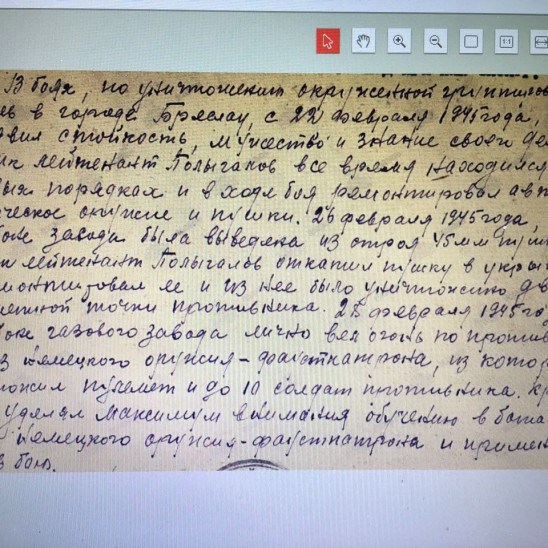 В боях, по уничтожению окруженной группиров
в городе Бреслау, с 22 февраля 1945 года,
стойкость, мужество и знание своего де
лейтенант Полыгалов все время находился
порядках и в ходе боя ремонтировал авт
ческое оружие и пушки. 26 февраля 1945 года,
завода была выведена из строя 45 мм пуш
лейтенант Полыгалов откатил пушку в укры
ее и из нее было уничтожено дв
точки противника. 28 февраля 1945 го
газового завода лично вел огонь по против
из немецкого оружия-фаустпатрона, из котор
пулемет и до 10 солдат противника. Кр
уделял максимум внимания обучению в бата
немецкого оружия-фаустпатрона и примен
в бою.
1:1